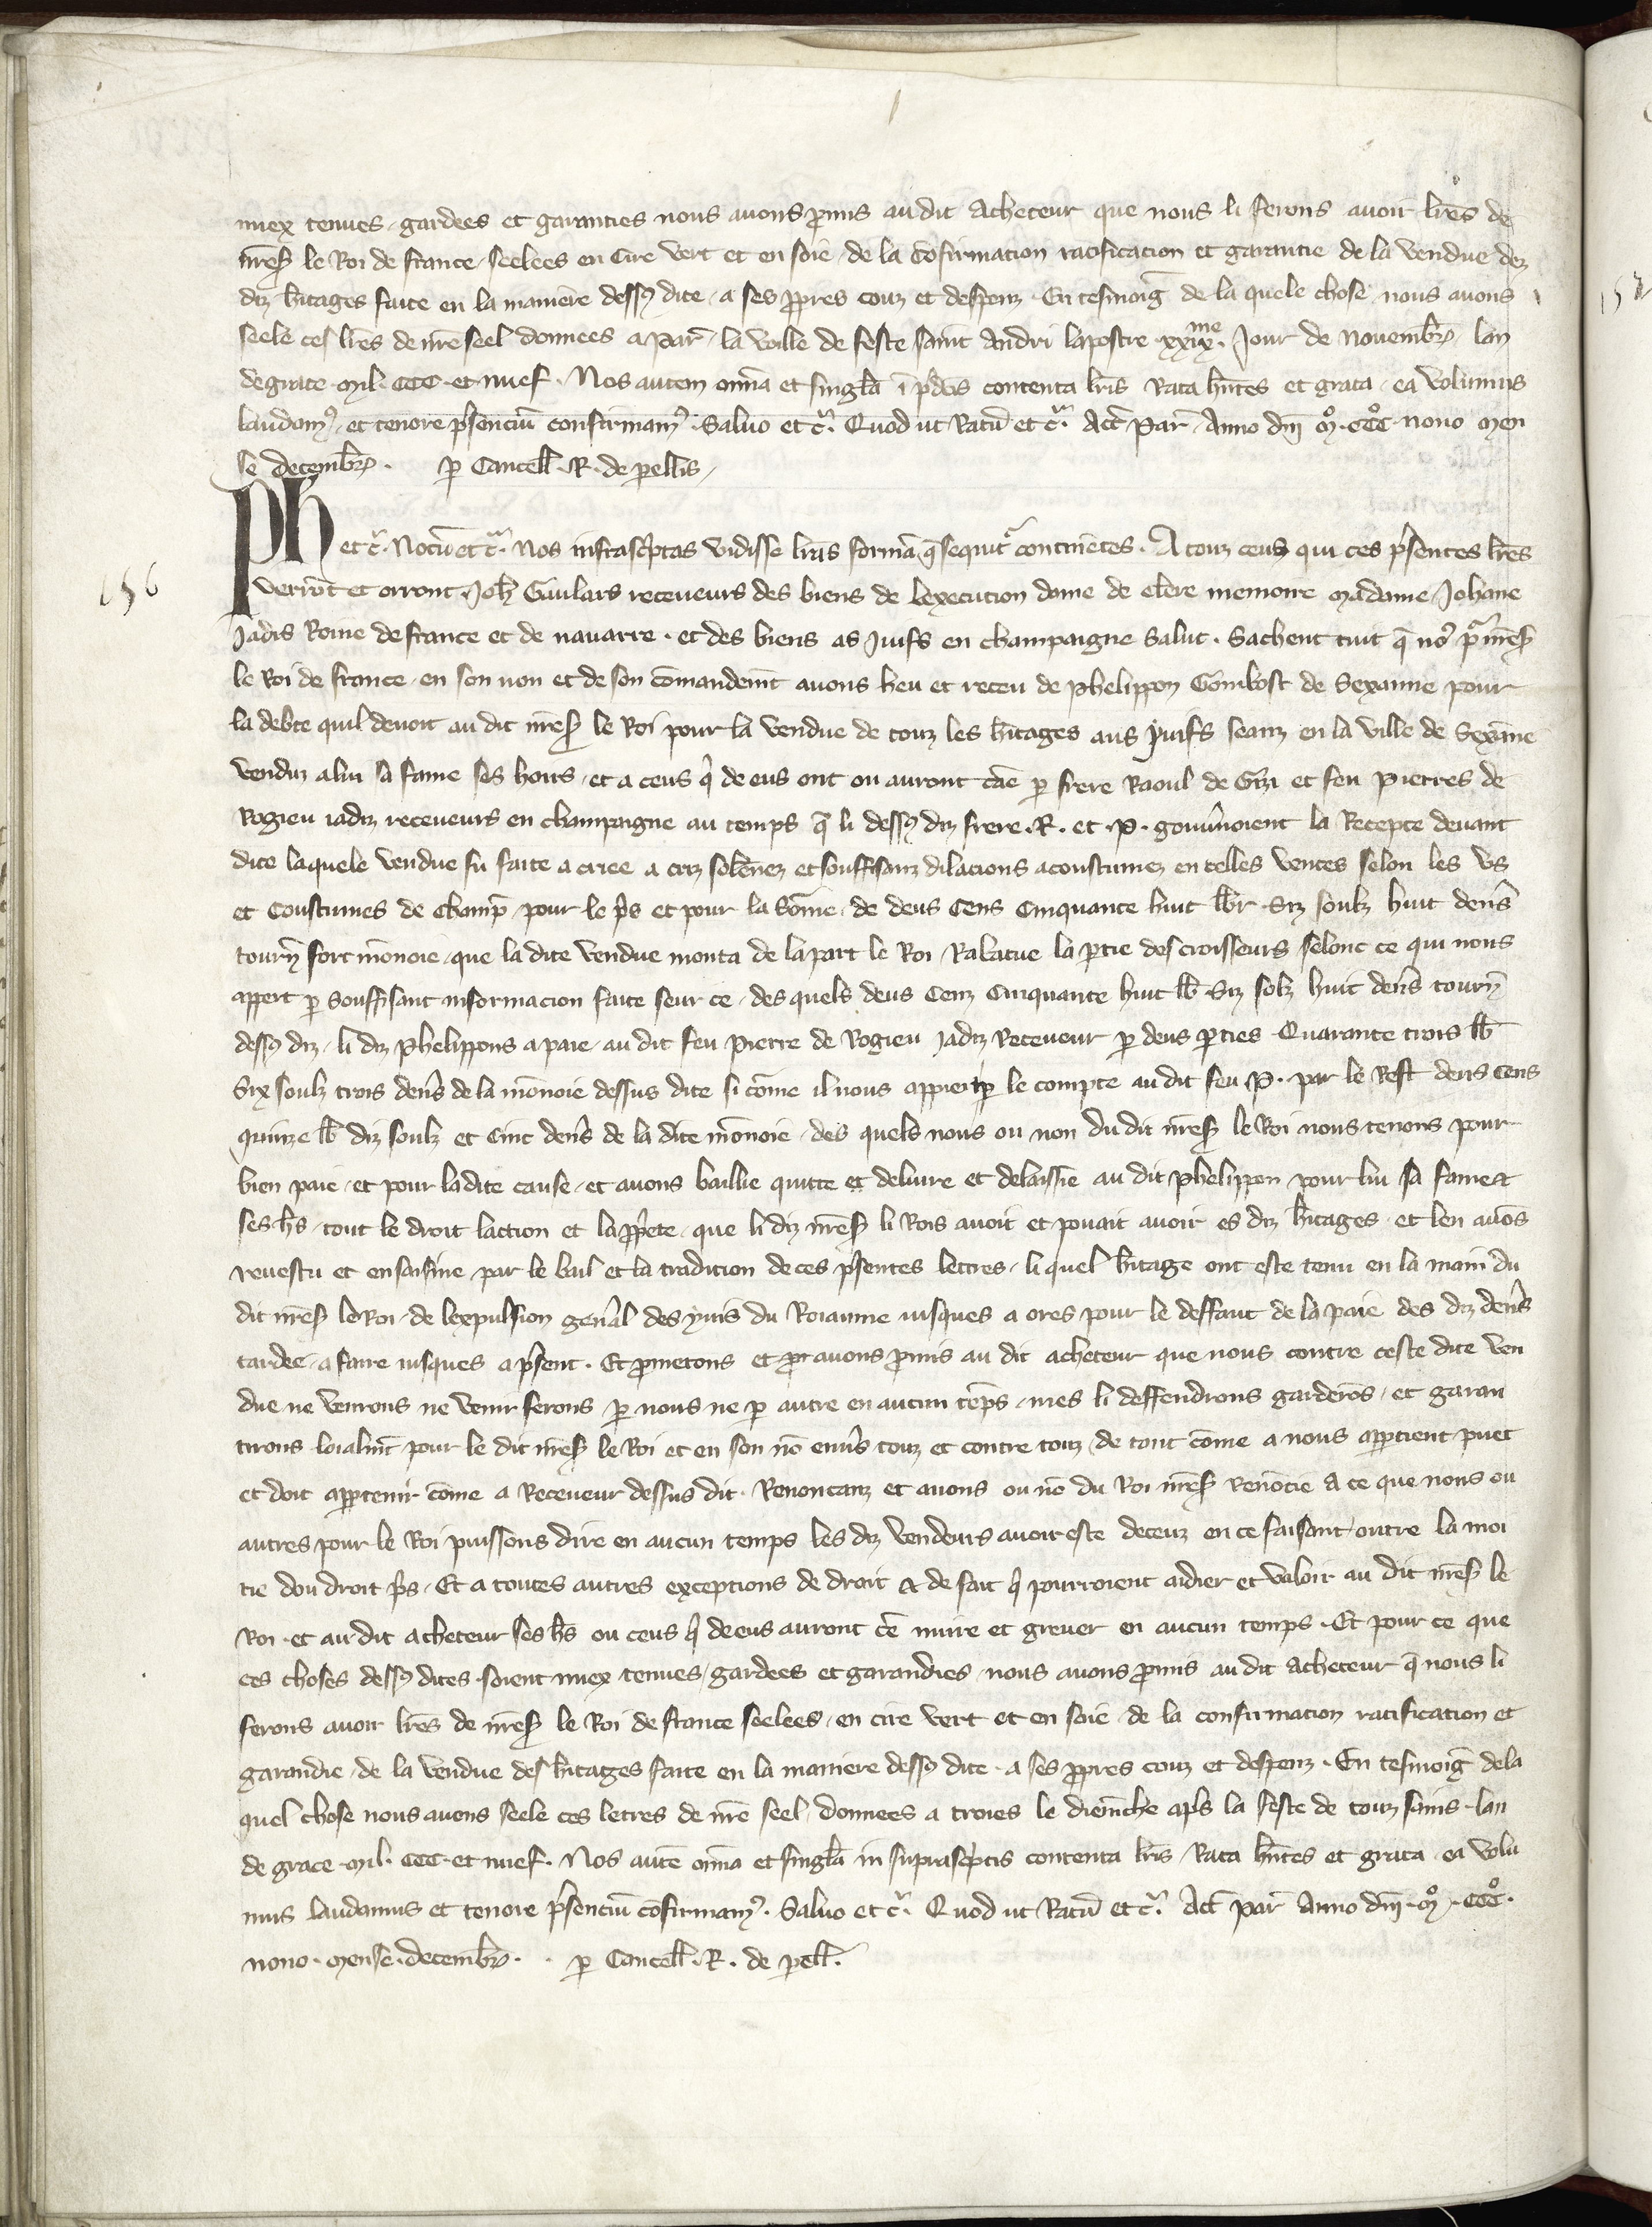 miex tenues gardees et garanties nous auons ꝓmis au dit acheteur que nous li ferons auoir lr̄es de
mes̄ le Roi de france seelees en cire vert et en soie de la cōfirmation ratification et garantie de la vendue dez
diz h̄itages faite en la maniere dessꝰ dite a ses ꝓpres couz et despenz En tesmoiḡ de la quele chose nous auons
seele ces lr̄es de nr̄e seel donnees a Par̄ la voille de feste saint Andri lapostre xxixme Jour de Nouembr̄ lan
de grace mil CCC et nuef. Nos autem om̄ia et singl̄a ī p̄dc̄is contenta lr̄is Rata hn̄tes et grata ea volumus
laudamꝰ et tenore p̄senciū confirmamꝰ. Saluo etc̄. Quod ut Ratū etc̄. Act̄ Par̄ Anno dn̄i mº CCCº nono Men
se decembr̄. ꝑ Cancell̄. R. de perellis
Ph etc̄. Notū etc̄. Nos infrasc̄ptas vidisse lr̄as formā q̄ sequit᷑ continētes. A touz ceus qui ces p̄sentes lr̄es
verrōt et orront Joh̄ Gaulars receueurs des biens de lexecution dame de clere memoire Madame Johane
Jadis Roine de france et de nauarre. et des biens as Juifs en champaigne Salut. Sachent tuit q̄ noꝰ pᵃ mes̄
le Roi de france en son non et de son cōmandemt̄ auons heu et receu de Phelippon Gombost de Sexanne pour
la debte quil deuoit au dit mes̄ le Roi pour la vendue de touz les h̄itages aus Juifs seanz en la ville de Sexāne
venduz a lui sa fame ses hoirs et a ceus q̄ de eus ont ou auront cāe ꝑ frere Raoul de Gizi et feu Pierres de
Rogieu iadiz receueurs en champaigne au temps q̄ li dessꝰ diz frere R. et P. gouūnoient la Recepte deuant
dite laquele vendue fu faite a criee a criz solēnez et souffisanz dilacions acoustumez en telles ventes selon les vs
et Coustumes de Champ̄ pour le p̄s et pour la Sōme de deus Cens Cinquante huit lb̄r Siz soulz huit den̄s
tourn̄ fort mōnoie que la dite vendue monta de la part le Roi Rabatue la ꝑtie des croisseurs selonc ce qui nous
appert ꝑ souffisant informacion faite seur ce des quels deus Cenz Cinquante huit lb̄ Siz solz huit den̄s tourn̄
dessꝰ diz li diz Phelippons a paie au dit feu Pierre de Rogieu iadiz Receueur ꝑ deus ꝑties Quarante trois lb̄
Six soulz trois den̄s de la mōnoie dessus dite si cōme il nous appiert ꝑ le compte au dit feu P. par le Rest deus Cens
quinze lb̄ diz soulz et Cinc den̄s de la dite mōnoie des quels nous ou non du dit mes̄ le Roi nous tenons pour
bien paie et pour ladite cause et auons baillie quitte et deliure et delaissie au dit Phelippon pour lui sa fame et
ses hs̄ tout le droit laction et la ꝓp̄ete que li diz mes̄ li Rois auoit et pouait auoir es diz h̄itages et len auōs
reuestu et ensaisine par le bail et la tradition de ces p̄sentes lettres li quel h̄itage ont este tenu en la main du
dit mes̄ le Roi de lexpulsion gen̄al des Juis du Roiaume iusques a ores pour le deffaut de la paie des diz den̄s
tardee a faire iusques a p̄sent. Et ꝓmetons et auons ꝓmis au dit acheteur que nous contre ceste dite ven
due ne venrons ne venir ferons ꝑ nous ne ꝑ autre en aucun tēps mes li deffendrons garderōs et garan
tirons loialmt̄ pour le dit mes̄ le Roi et en son nō enu̅s touz et contre touz de tout cōme a nous apꝑtient puet
et doit apꝑtenir cōme a Receueur dessus dit. Renoncanz et auons ou nō du Roi mes̄ renōcie a ce que nous ou
autres pour le Roi puissons dire en aucun temps les diz vendeurs auoir este deceuz en ce faisant outre la moi
tie dou droit p̄s. Et a toutes autres exceptions de droit et de fait q̄ pourroient aidier et valoir au dit mes̄ le
Roi et au dit acheteur ses hs̄ ou ceus q̄ de eus auront cāe nuire et greuer en aucun temps. Et pour ce que
ces choses dessꝰ dites soient miex tenues gardees et garandies nous auons ꝓmis au dit acheteur q̄ nous li
ferons auoir lr̄es de mes̄ le Roi de france seelees en cire vert et en soie de la confirmation ratification et
garandie de la vendue des h̄itages faite en la maniere dessꝰ dite a ses ꝓpres couz et despenz. En tesmoiḡ de la
quel chose nous auons seele ces letres de nr̄e seel donnees a troies le diemēche ap̄s la feste de touz sains lan
de grace mil CCC et nuef. Nos autē om̄ia et singl̄a in suprasc̄ptis contenta lr̄is Rata hn̄tes et grata ea volu
mus laudamus et tenore p̄senciū cōfirmamꝰ. Saluo etc̄. Quod ut Ratū etc̄. Act̄ Par̄ Anno dn̄i mº CCCº
nono Mense decembr̄. ꝑ Cancell̄. R. de perell̄.
156